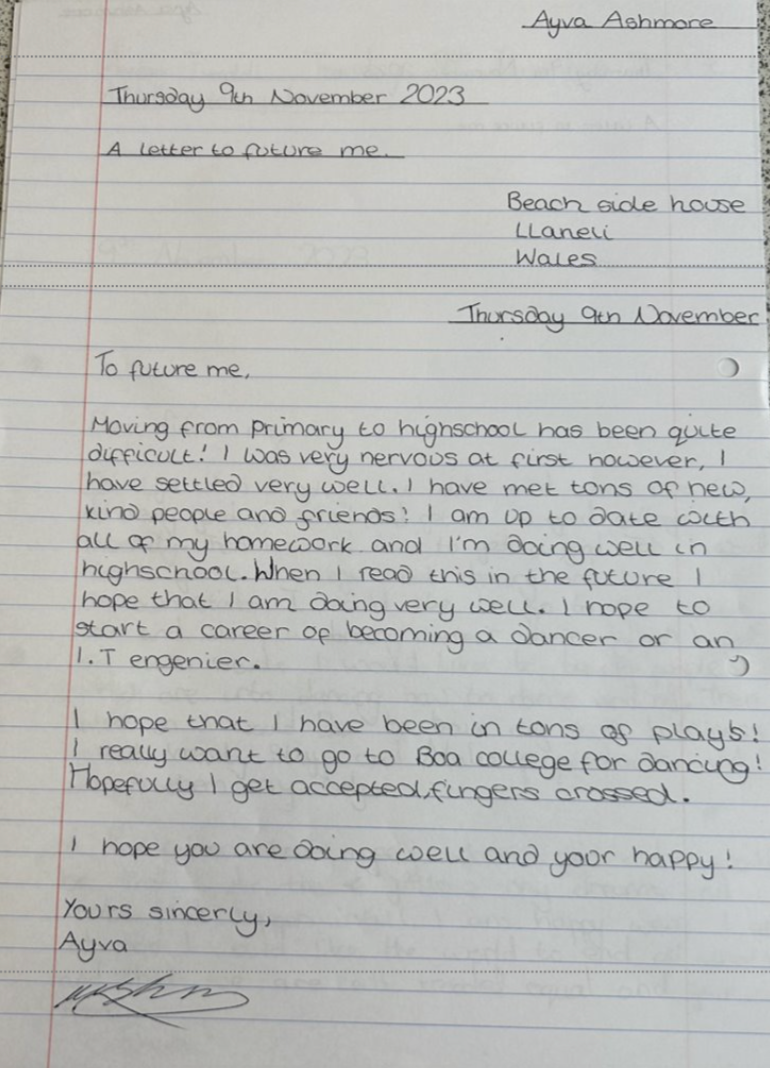 Ayva Ashmore
Thursday 9th November 2023
A letter to future me.
Beach side house
LLaneli
Wales
Thursday 9th November
To future me,
Moving from primary to highschool has been quite
difficult! I was very nervous at first however, I
have settled very well. I have met tons of new,
kind people and friends! I am up to date with
all of my homework and I'm doing well in
highschool. When I read this in the future I
hope that I am doing very well. I hope to
start a career of becoming a dancer or an
I.T engenier.
I hope that I have been in tons of plays!
I really want to go to Boa college for dancing!
Hopefully I get accepted, fingers crossed.
I hope you are doing well and your happy!
Yours sincerly,
Ayva